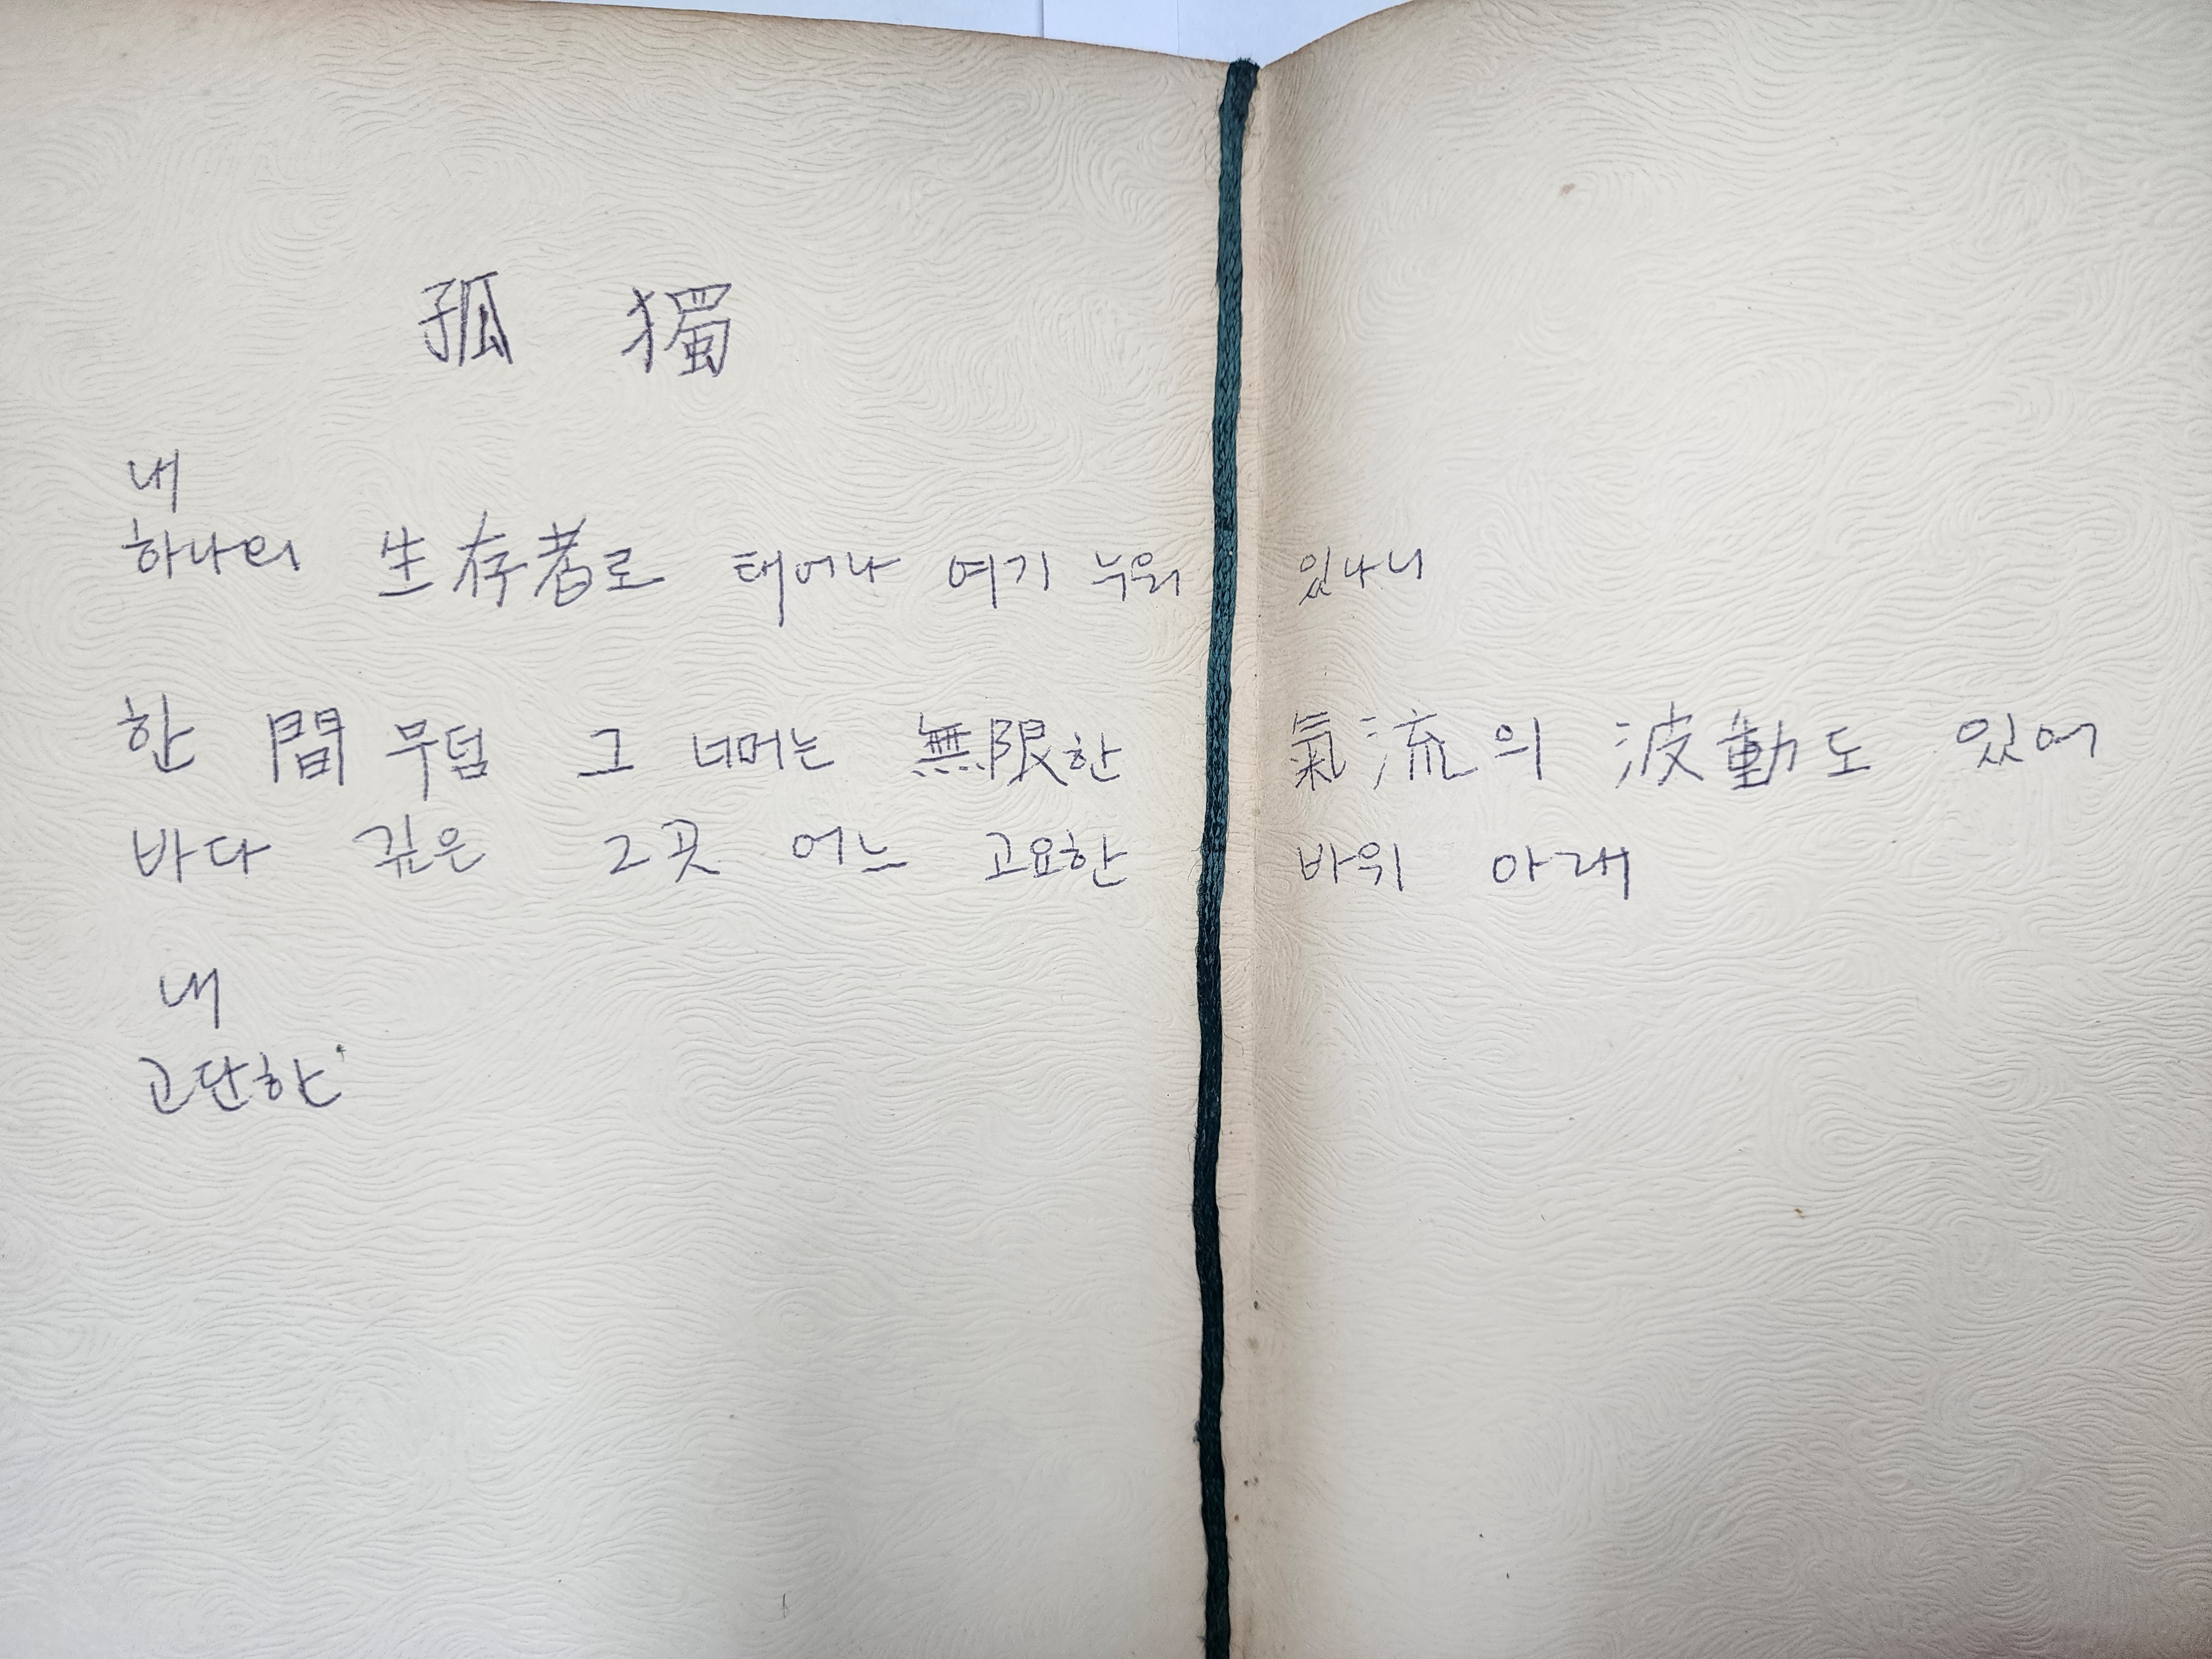 孤 獨
내
하나의 生存者로 태어나 여기 누워 있나니
한 間 무덤 그 너머는 無限한 氣流의 波動도 있어
바다 깊은 그곳 어느 고요한 바위 아래
내
고단한